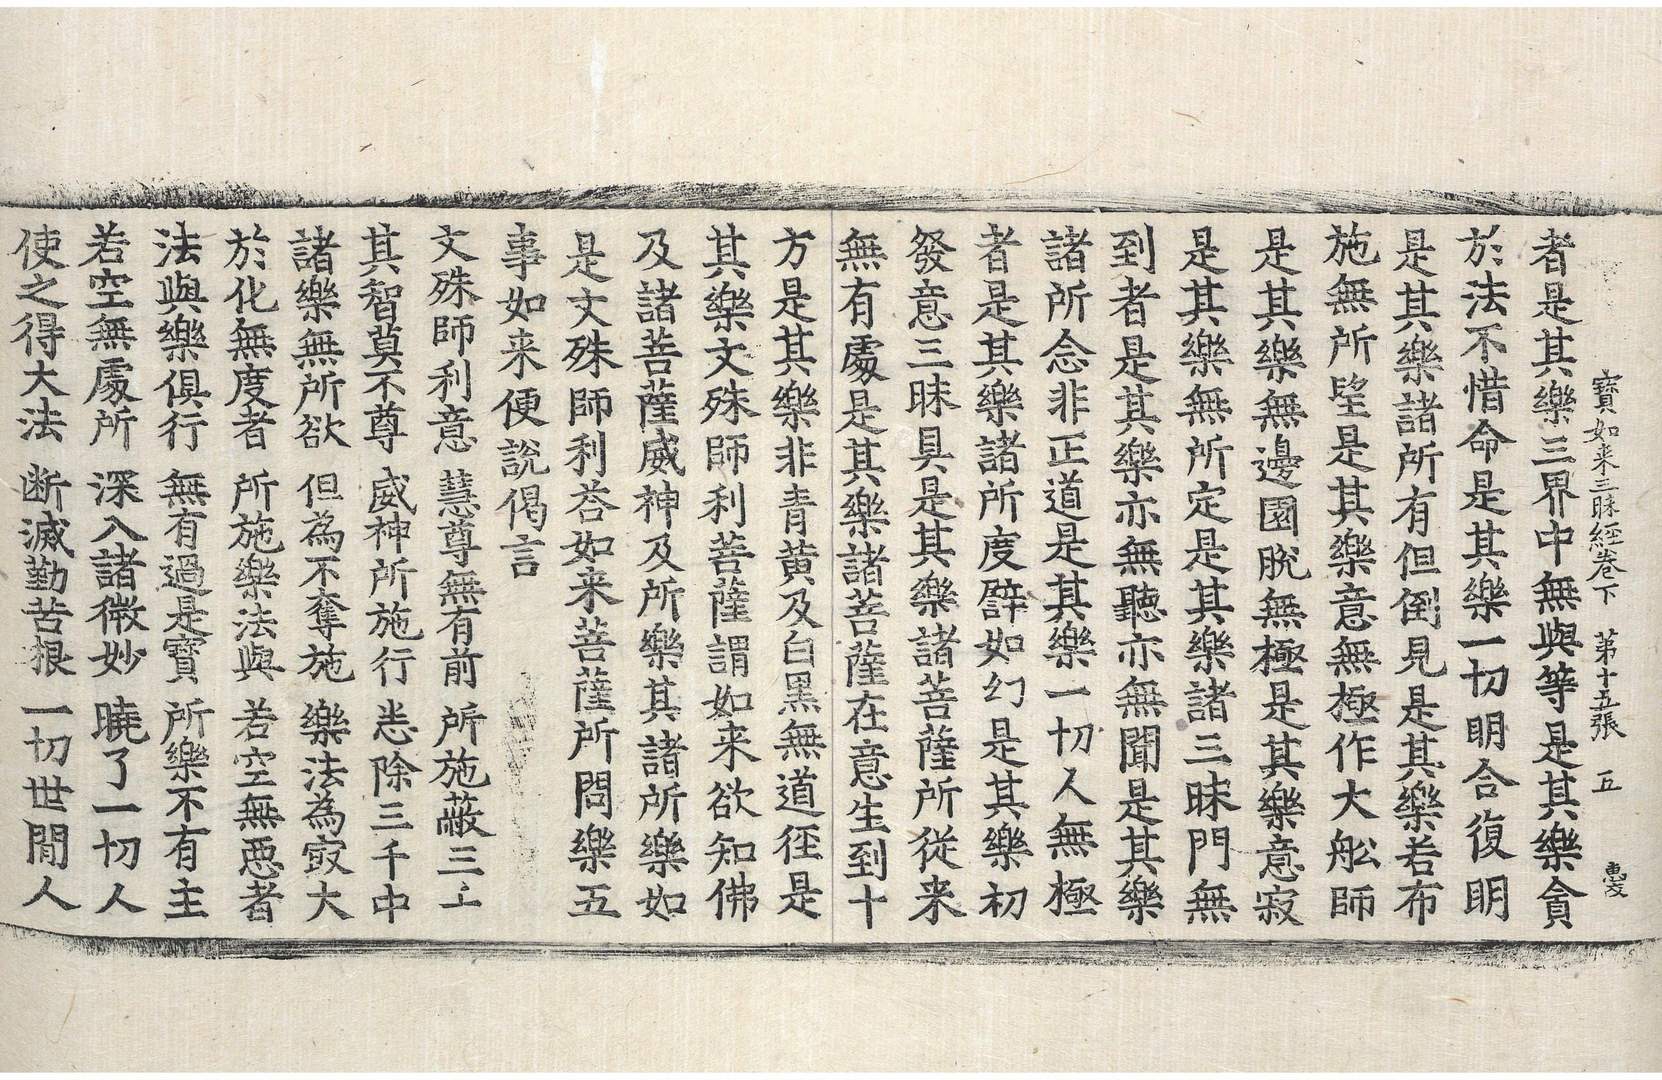 寶如来三昧經卷下　第十五張　五　惠文
者是其樂三界中無與等是其樂貪
於法不惜命是其樂一切明合復明
是其樂諸所有但倒見是其樂若布
施無所望是其樂意無極作大舩師
是其樂無邊園脫無極是其樂意寂
是其樂無所定是其樂諸三昧門無
到者是其樂亦無聽亦無聞是其樂
諸所念非正道是其樂一切人無極
者是其樂諸所度譬如幻是其樂初
發意三昧具是其樂諸菩薩所從来
無有處是其樂諸菩薩在意生到十
方是其樂非青黄及白黑無道徑是
其樂文殊師利菩薩謂如来欲知佛
及諸菩薩威神及所樂其諸所樂如
是文殊師利荅如来菩薩所問樂五
事如来便說偈言
文殊師利意　慧尊無有前　所施蔽三上
其智莫不尊　威神所施行　恙除三千中
諸樂無所欲　但為不奪施　樂法為㝡大
於化無度者　所施樂法與　若空無惡者
法與樂俱行　無有過是寶　所樂不有主
若空無處所　深入諸微妙　曉了一切人
使之得大法　断滅勤苦根　一切世間人